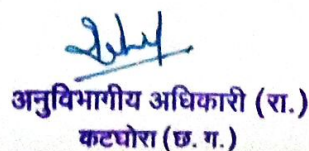 अनुविभागीय अधिकारी (रा.)
कटघोरा (छ. ग.)